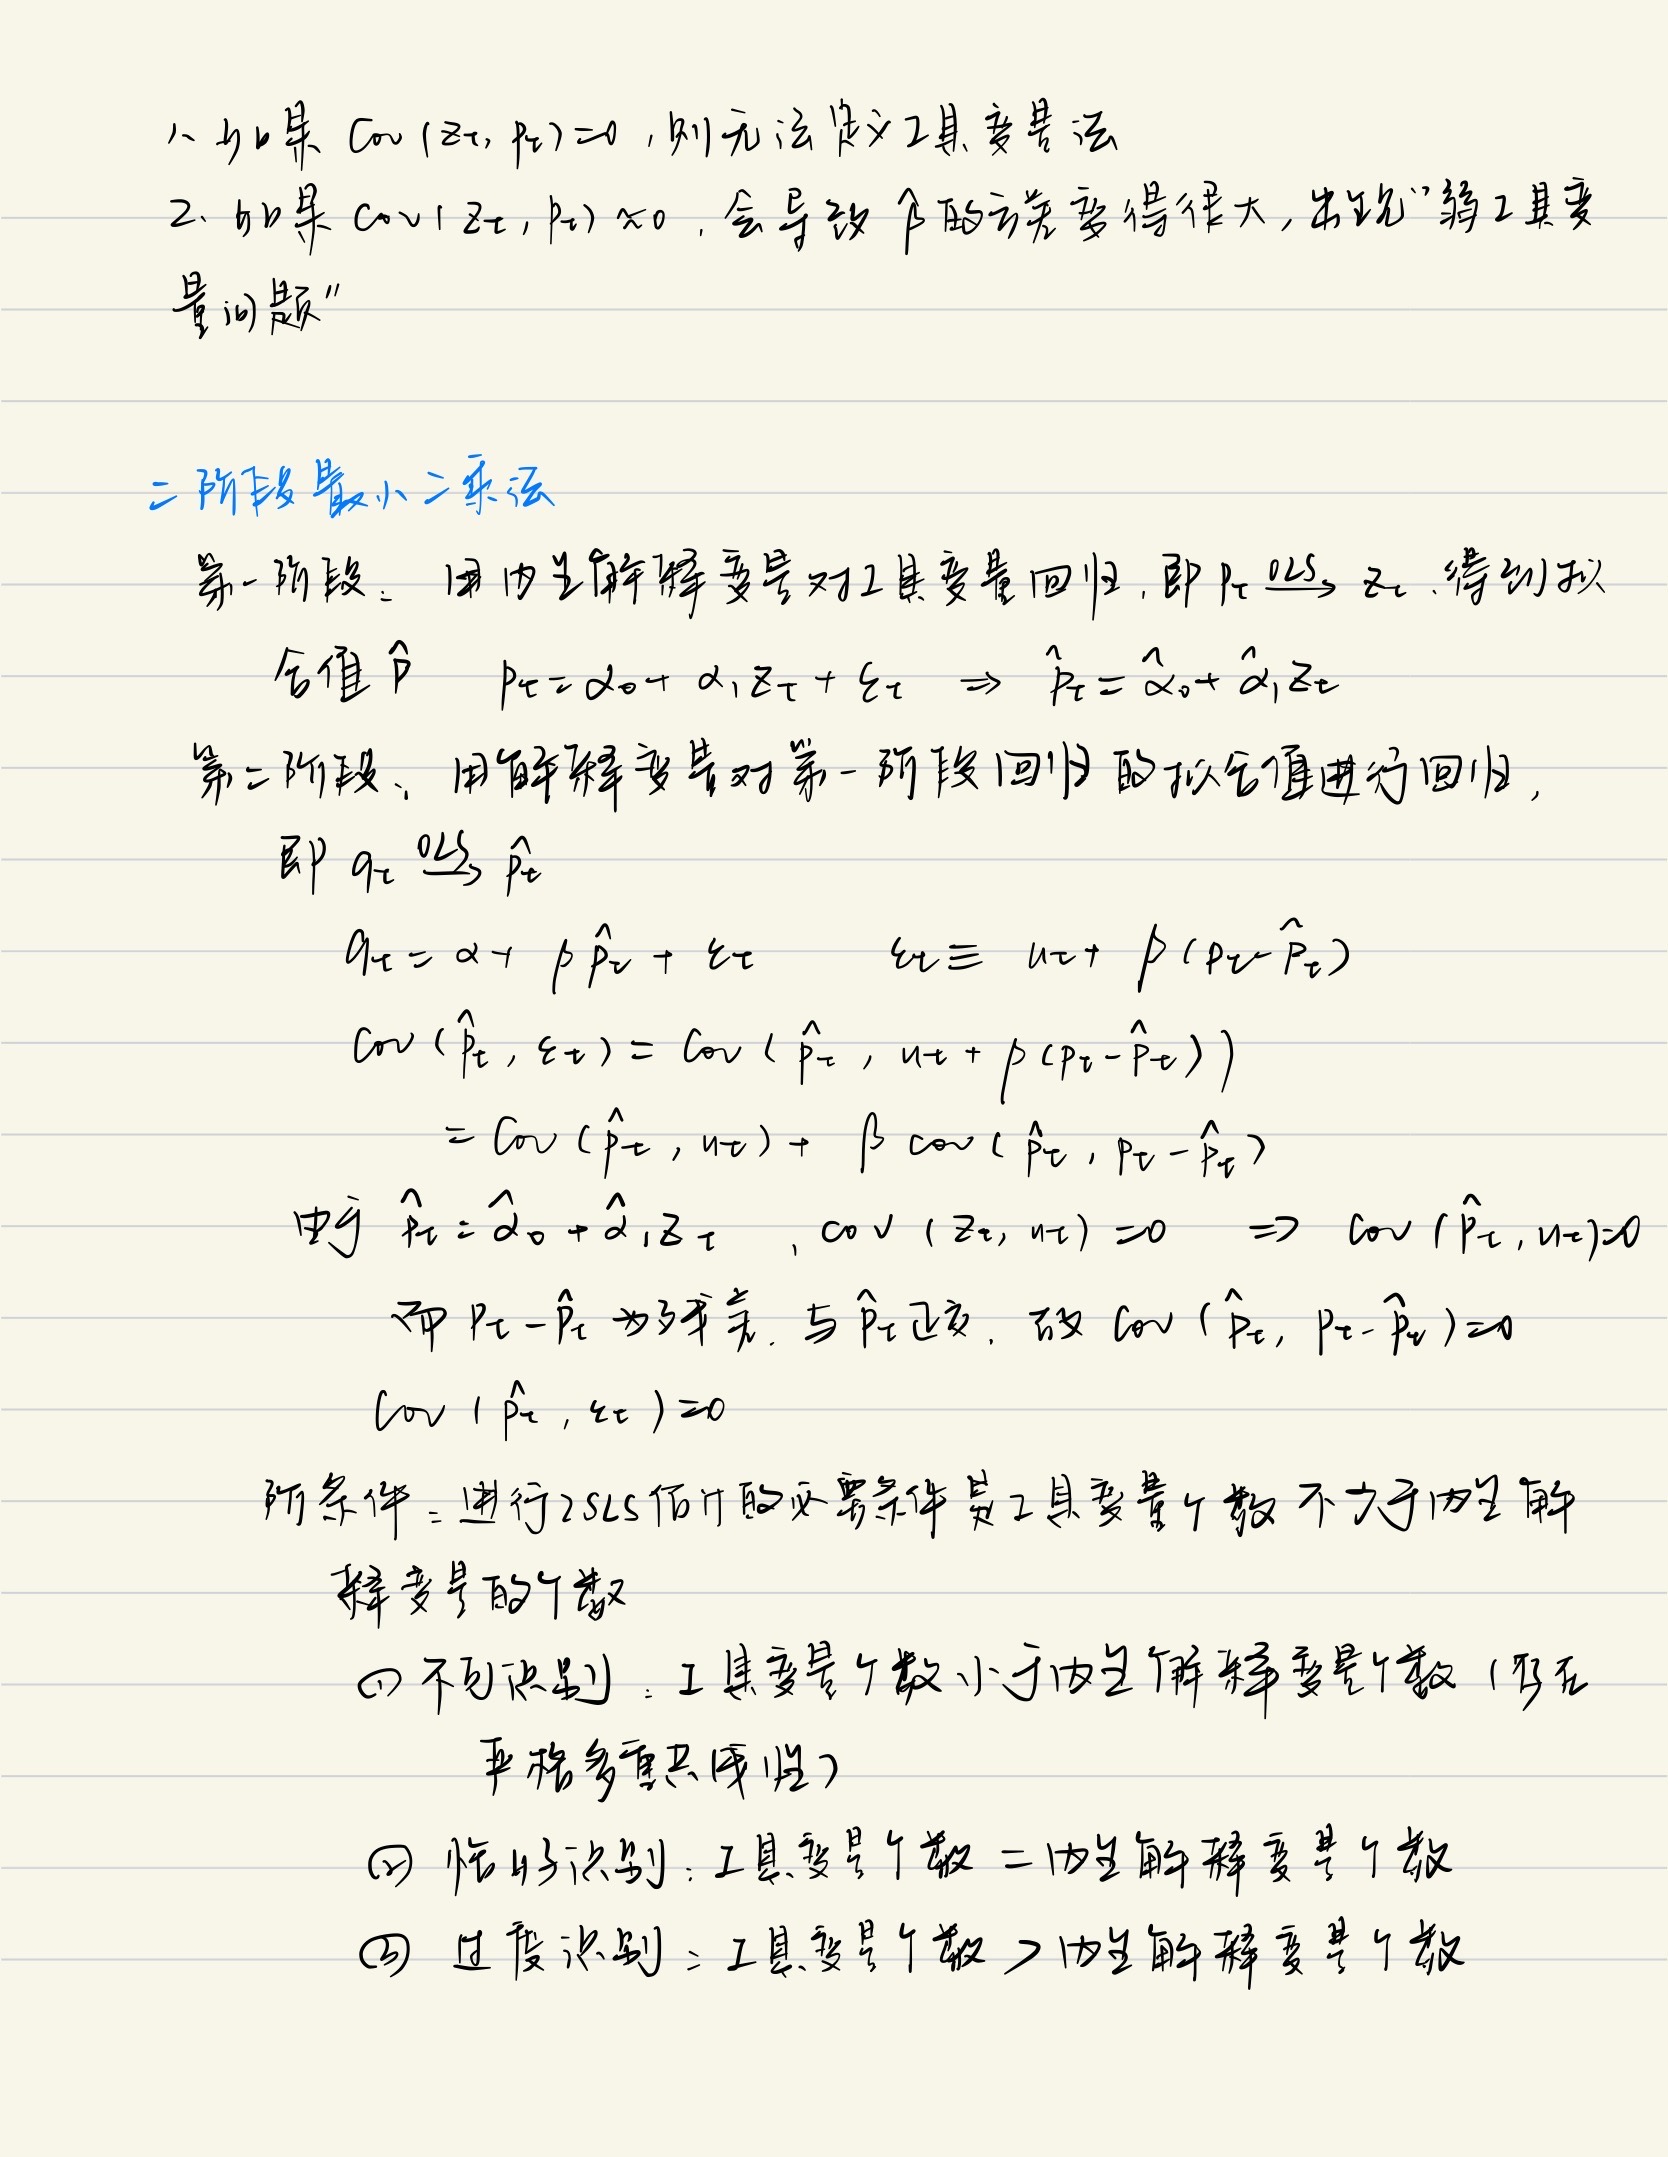 1、如果 Cov(Zt, Pt)=0，则无法定义工具变量法
2. 如果 Cov(Zt, Pt)≈0，会导致 β̂ 的方差变得很大，出现“弱工具变
量问题”
二阶段最小二乘法
第一阶段：用内生解释变量对工具变量回归，即 Pt —OLS→ Zt，得到拟
合值 P̂  Pt = α0 + α1Zt + εt ⇒ P̂t = α̂0 + α̂1Zt
第二阶段：用解释变量对第一阶段回归的拟合值进行回归，
即 qt —OLS→ P̂t
qt = α + βP̂t + εt  εt ≡ ut + β(Pt - P̂t)
Cov(P̂t, εt) = Cov(P̂t, ut + β(Pt - P̂t))
= Cov(P̂t, ut) + β cov(P̂t, Pt - P̂t)
由于 P̂t = α̂0 + α̂1Zt，cov(Zt, ut) = 0 ⇒ Cov(P̂t, ut)=0
而 Pt - P̂t 为残差，与 P̂t 正交，故 Cov(P̂t, Pt - P̂t)=0
Cov(P̂t, εt)=0
阶条件：进行2SLS估计的必要条件是工具变量个数不少于内生解
释变量的个数
(1) 不可识别：工具变量个数小于内生解释变量个数（存在
严格多重共线性）
(2) 恰好识别：工具变量个数 = 内生解释变量个数
(3) 过度识别：工具变量个数 > 内生解释变量个数